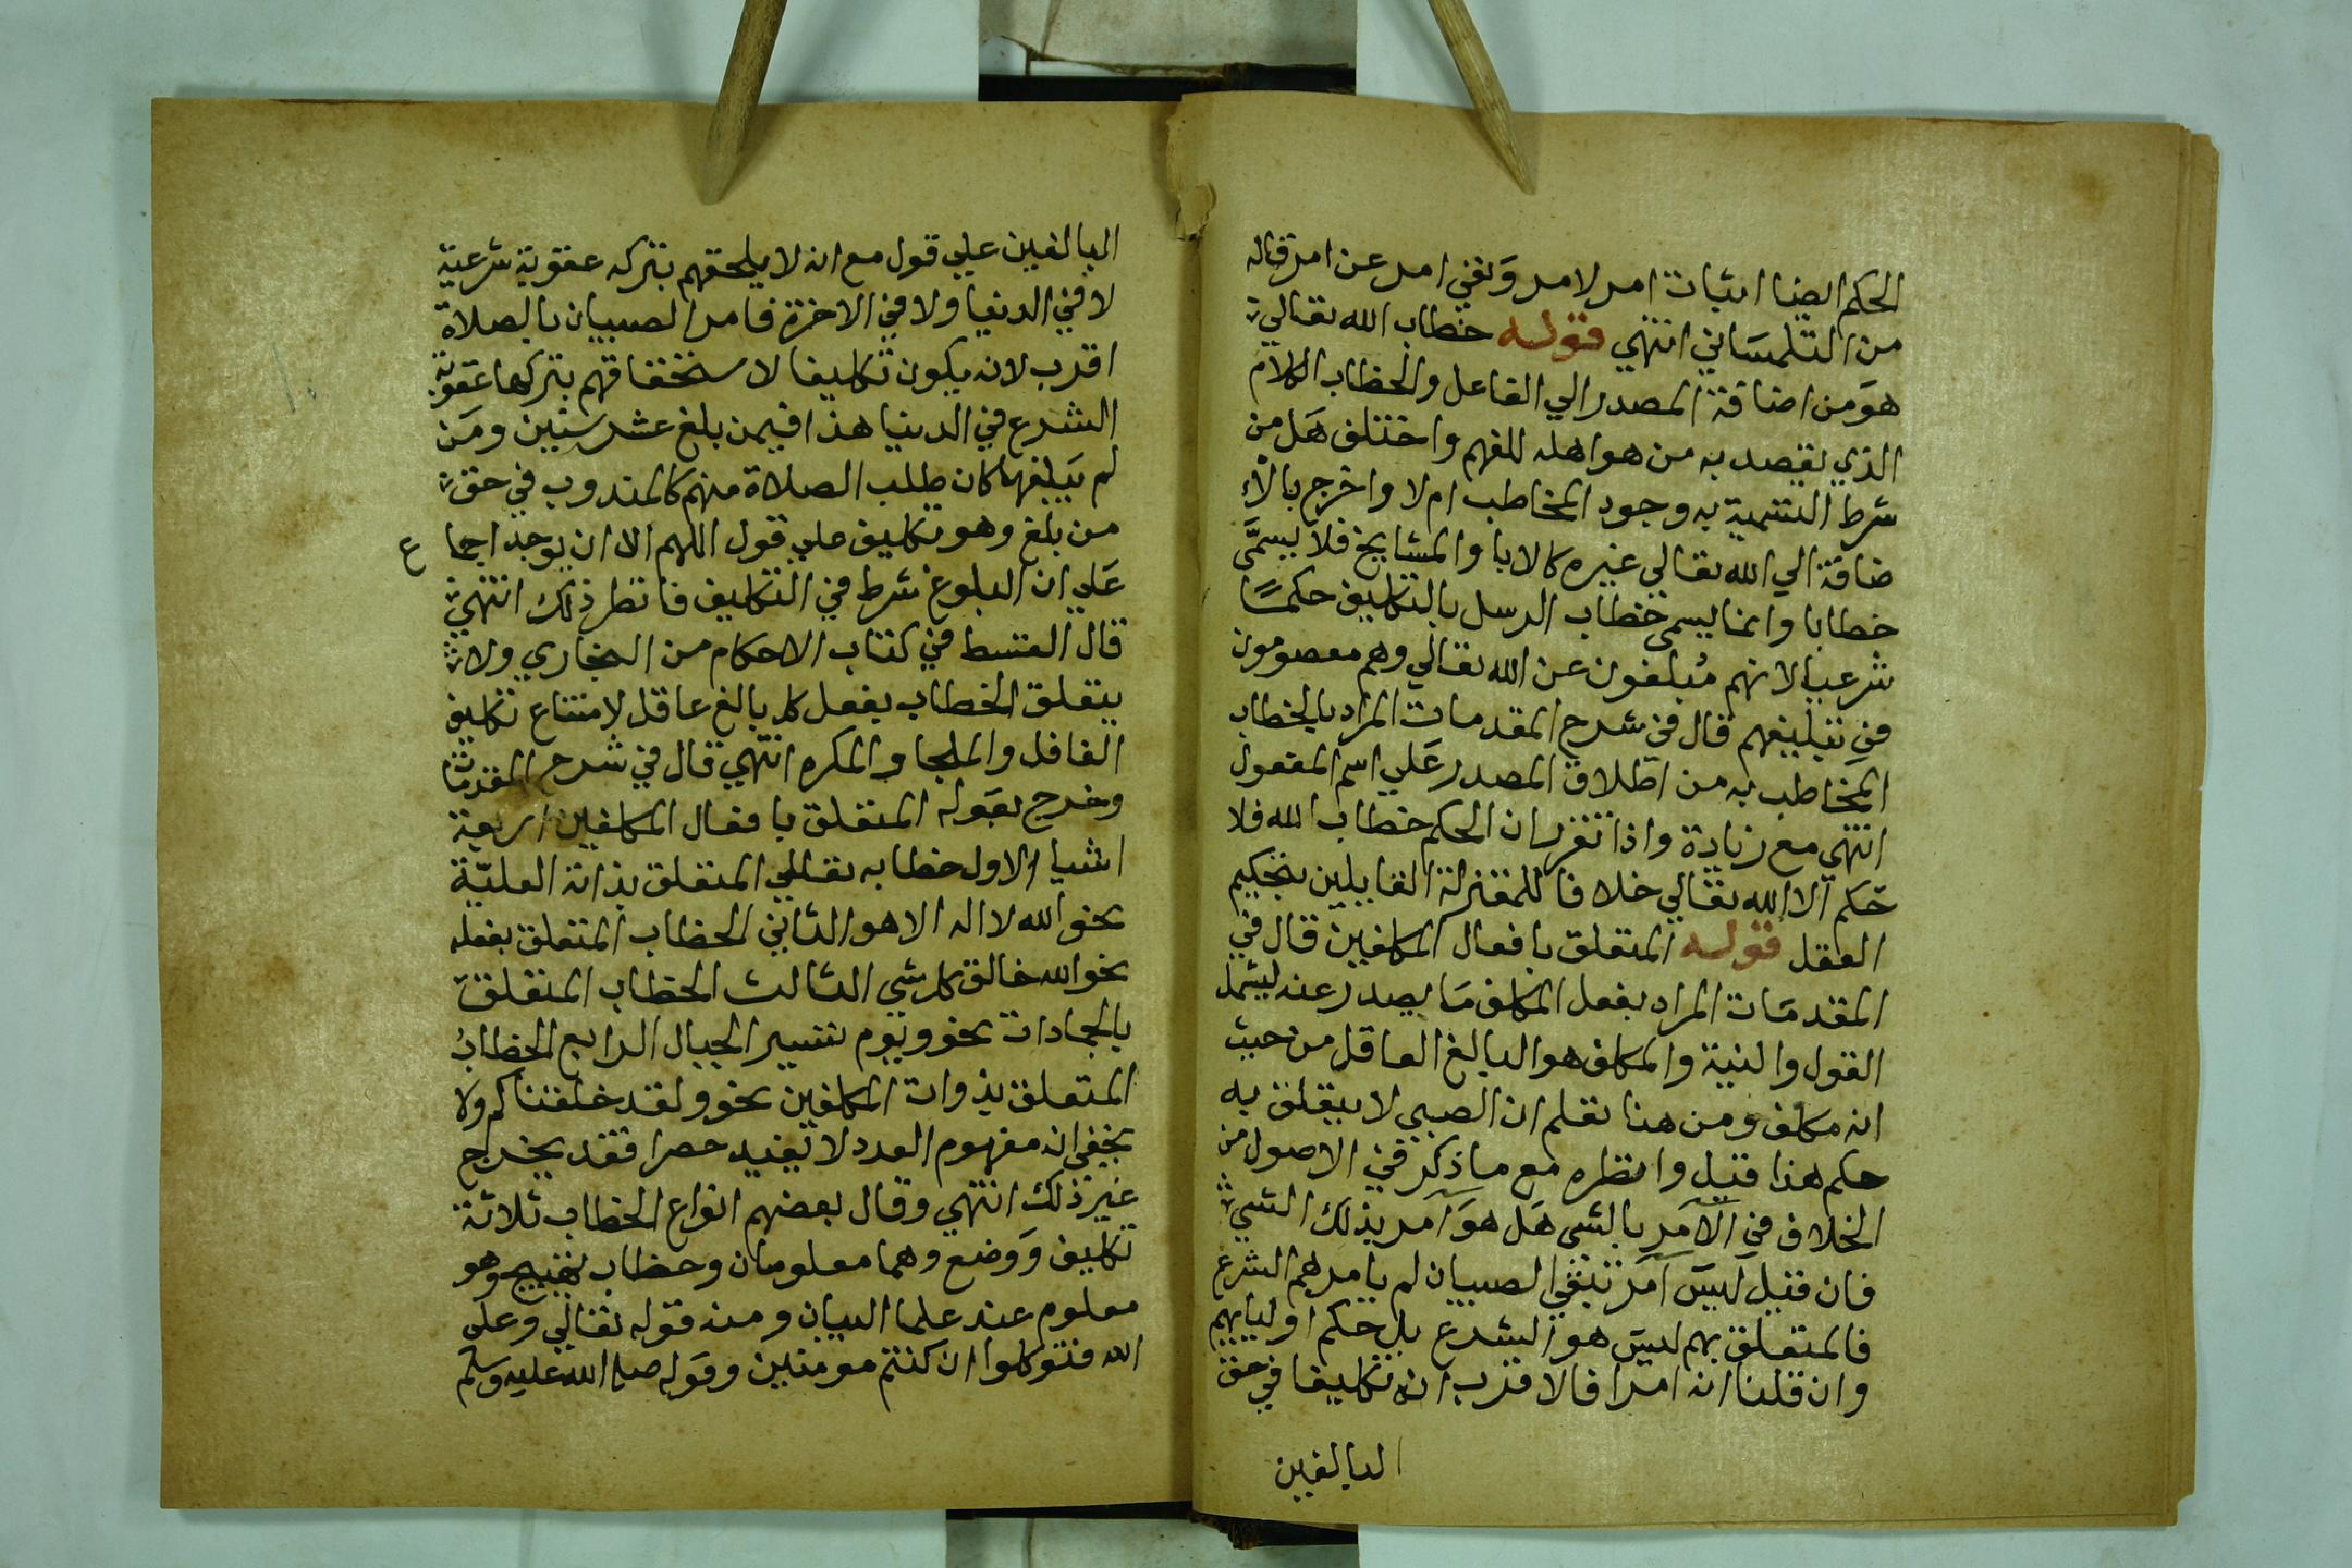 الحكم ايضا اثبات امر لامر ونفي امر عن امر قاله
من التلمساني انتهي قوله خطاب الله تعالي
هو من اضافة المصدر الي الفاعل والخطاب الكلام
الذي يقصد به من هو اهله للفهم واختلف هل من
شرط التسمية به وجود المخاطب ام لا واخرج بالا
ضافة الي الله تعالي غيره كالابا والمشايخ فلا يسمَّى
خطابا وانما يسمى خطاب الرسل بالتكليف حكمًا
شرعيا لانهم مُبلغون عن الله تعالي وهم معصومون
في تبليغهم قال في شرح المقدمات المراد بالخطاب
المخاطب به من اطلاق المصدر علي اسم المفعول
انتهي مع زيادة واذا تقرر ان الحكم خطاب الله فلا
حكم الا الله تعالي خلافا للمعتزلة القايلين بتحكيم
العقل قوله المتعلق بافعال المكلفين قال في
المقدمات المراد بفعل المكلف ما يصدر عنه ليشمل
القول والنية والمكلف هو البالغ العاقل من حيث
انه مكلف ومن هنا تعلم ان الصبي لا يتعلق به
حكم هذا قيل وانظره مع ما ذكر في الاصول من
الخلاف في الآمر بالشي هل هو آمر بذلك الشي
فان قيل ليس آمر تبقي الصبيان لم يامرهم الشرع
فالمتعلق بهم ليس هو الشرع بل حكم اوليايهم
وان قلنا انه امرا فالاقرب ان تكليفا في حق
البالغين
البالغين علي قول مع انه لا يلحقهم بتركه عقوبة شرعية
لا في الدنيا ولا في الاخرة فامر الصبيان بالصلاة
اقرب لانه يكون تكليفا لاستحقاقهم بتركها عقوبة
الشرع في الدنيا هذا فيمن بلغ عشر سنين ومن
لم يبلغها كان طلب الصلاة منهم كالمندوب في حق
من بلغ وهو تكليف علي قول اللهم الا ان يوجد اجما ع
علي ان البلوغ شرط في التكليف فانظر ذلك انتهي
قال القسط في كتاب الاحكام من البخاري ولا
يتعلق الخطاب بفعل كل بالغ عاقل لامتناع تكليف
الغافل والملجا والمكره انتهي قال في شرح المقدمات
وخرج بقوله المتعلق بافعال المكلفين اربعة
اشيا الاول خطابه تعالي المتعلق بذاته العليّة
نحو الله لا اله الا هو الثاني الخطاب المتعلق بفعله
نحو الله خالق كل شي الثالث الخطاب المتعلق
بالجمادات نحو ويوم تسير الجبال الرابع الخطابُ
المتعلق بذوات المكلفين نحو ولقد خلقناكم ولا
يخفي ان مفهوم العدد لا يفيد حصرا فقد يخرج
غير ذلك انتهي وقال بعضهم انواع الخطاب ثلاثة
تكليف ووضع وهما معلومان وخطاب تهييج وهو
معلوم عند علما البيان ومنه قوله تعالي وعلى
الله فتوكلوا ان كنتم مومنين وقوله صلى الله عليه وسلم